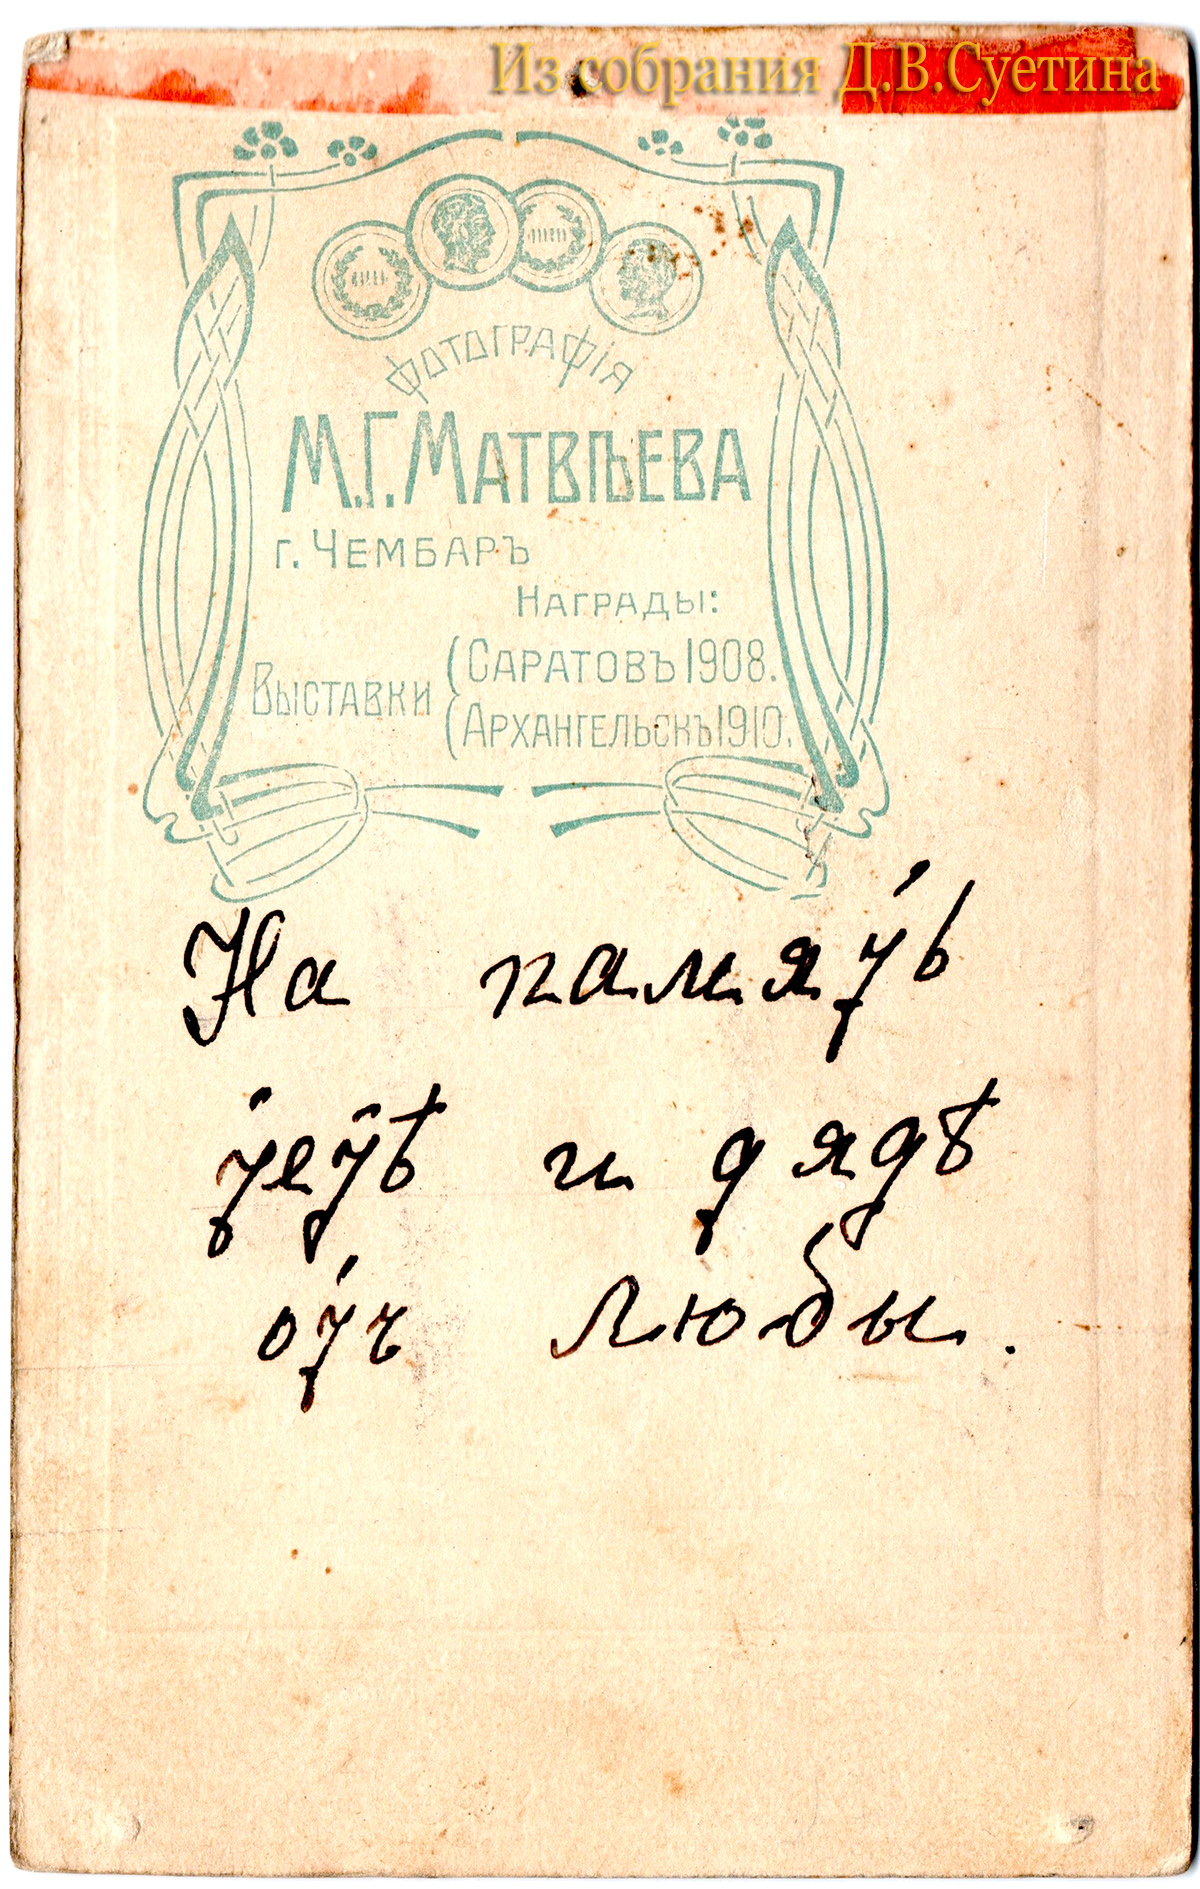 Из собрания Д.В.Суетина
Фотографія
М.Г.Матвѣева
г. Чембаръ
Награды:
Выставки
Саратовъ 1908.
Архангельскъ 1910.
На память
тетѣ и дядѣ
отъ Любы.